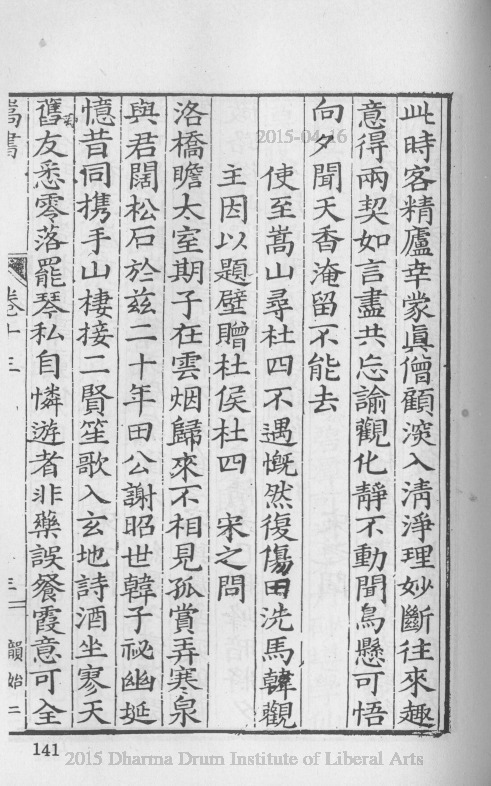 此時客精廬幸蒙眞僧顧深入清淨理妙斷往來趣
意得兩契如言盡共忘諭觀化靜不動聞鳥懸可悟
向夕聞天香淹留不能去
使至嵩山尋杜四不遇慨然復傷田洗馬韓觀
主因以題壁贈杜侯杜四 宋之問
洛橋瞻太室期子在雲烟歸來不相見孤賞弄寒泉
與君闊松石於茲二十年田公謝昭世韓子祕幽埏
憶昔同携手山棲接二賢笙歌入玄地詩酒坐寥天
舊友悉零落罷琴私自憐遊者非藥誤餐霞意可全
嵩書 卷十三 三 韻始二
141
2015-04-16
2015 Dharma Drum Institute of Liberal Arts